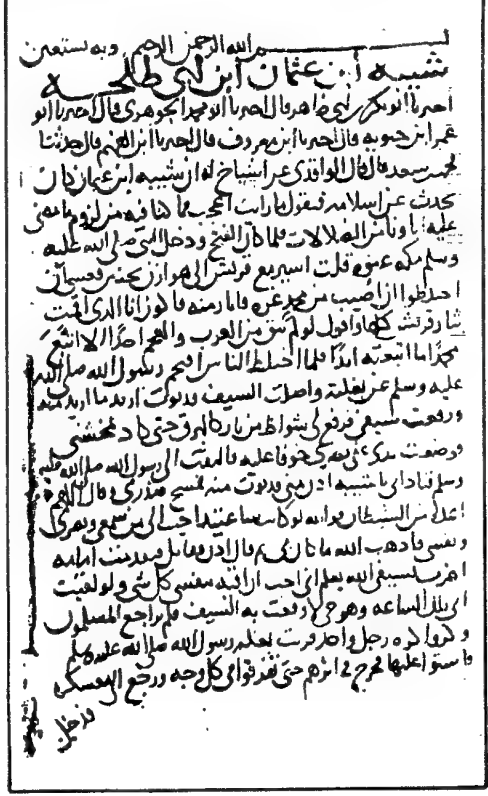 بسم الله الرحمن الرحيم وبه نستعين
شيبه ابن عثمان ابن ابي طلحه
اخبرنا ابو بكر بن ابي طاهر قال اخبرنا ابو محمد الجوهري قال اخبرنا ابو
عمر ابن حيويه قال اخبرنا ابن معروف قال اخبرنا ابن الفهم قال حدثنا
محمد بن سعد قال قال الواقدي عن اشياخ له ان شيبه ابن عثمان كان
يحدث عن اسلامه فيقول ما رايت اعجب مما كنا فيه من لزوم ما مضى
عليه اباونا من الضلالات فلما كان الفتح ودخل النبي صلى الله عليه
وسلم مكه عنوه قلت اسير مع قريش الى هوازن بحنين فعسى ان
اختلطوا ان اصيب من محمد غره فاثار منه فاكون انا الذي اقمت
بثار قريش كلها واقول لو لم يبق من العرب والعجم احدا الا اتبع
محمدا ما اتبعته ابدا فلما اختلط الناس اقتحم رسول الله صلى الله
عليه وسلم عن بغلته واصلت السيف فدنوت اريد ما اريد منه
ورفعت سيفي فرفع لي شواظ من نار كالبرق حتى كاد يمحشني
فوضعت يدي على بصري خوفا عليه فالتفت الي رسول الله صلى الله عليه
وسلم فنادى يا شيبه ادن مني فدنوت منه فمسح صدري وقال اللهم
اعذه من الشيطان فوالله لهو كان ساعتيذ احب الي من سمعي وبصري
ونفسي فاذهب الله ما كان بي ثم قال ادن فقاتل فتقدمت امامه
اضرب بسيفي الله يعلم اني احب ان اقيه بنفسي كل شي ولو لقيت
ابي تلك الساعه وهو حي لاوقعت به السيف فلم تراجع المسلمون
وكروا كره رجل واحد قربت بغله رسول الله صلى الله عليه وسلم
فاستوى عليها فخرج في اثرهم حتى تفرقوا في كل وجه ورجع الى معسكره
فدخل